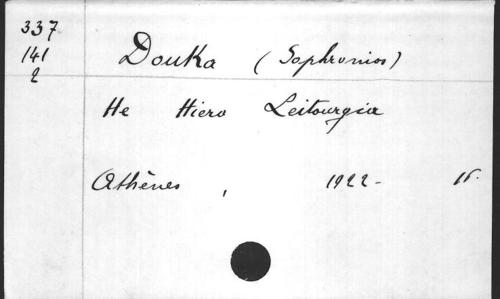 337
141
2
Douka (Sophronios)
He Hiera Leitourgia
Athènes, 1922-